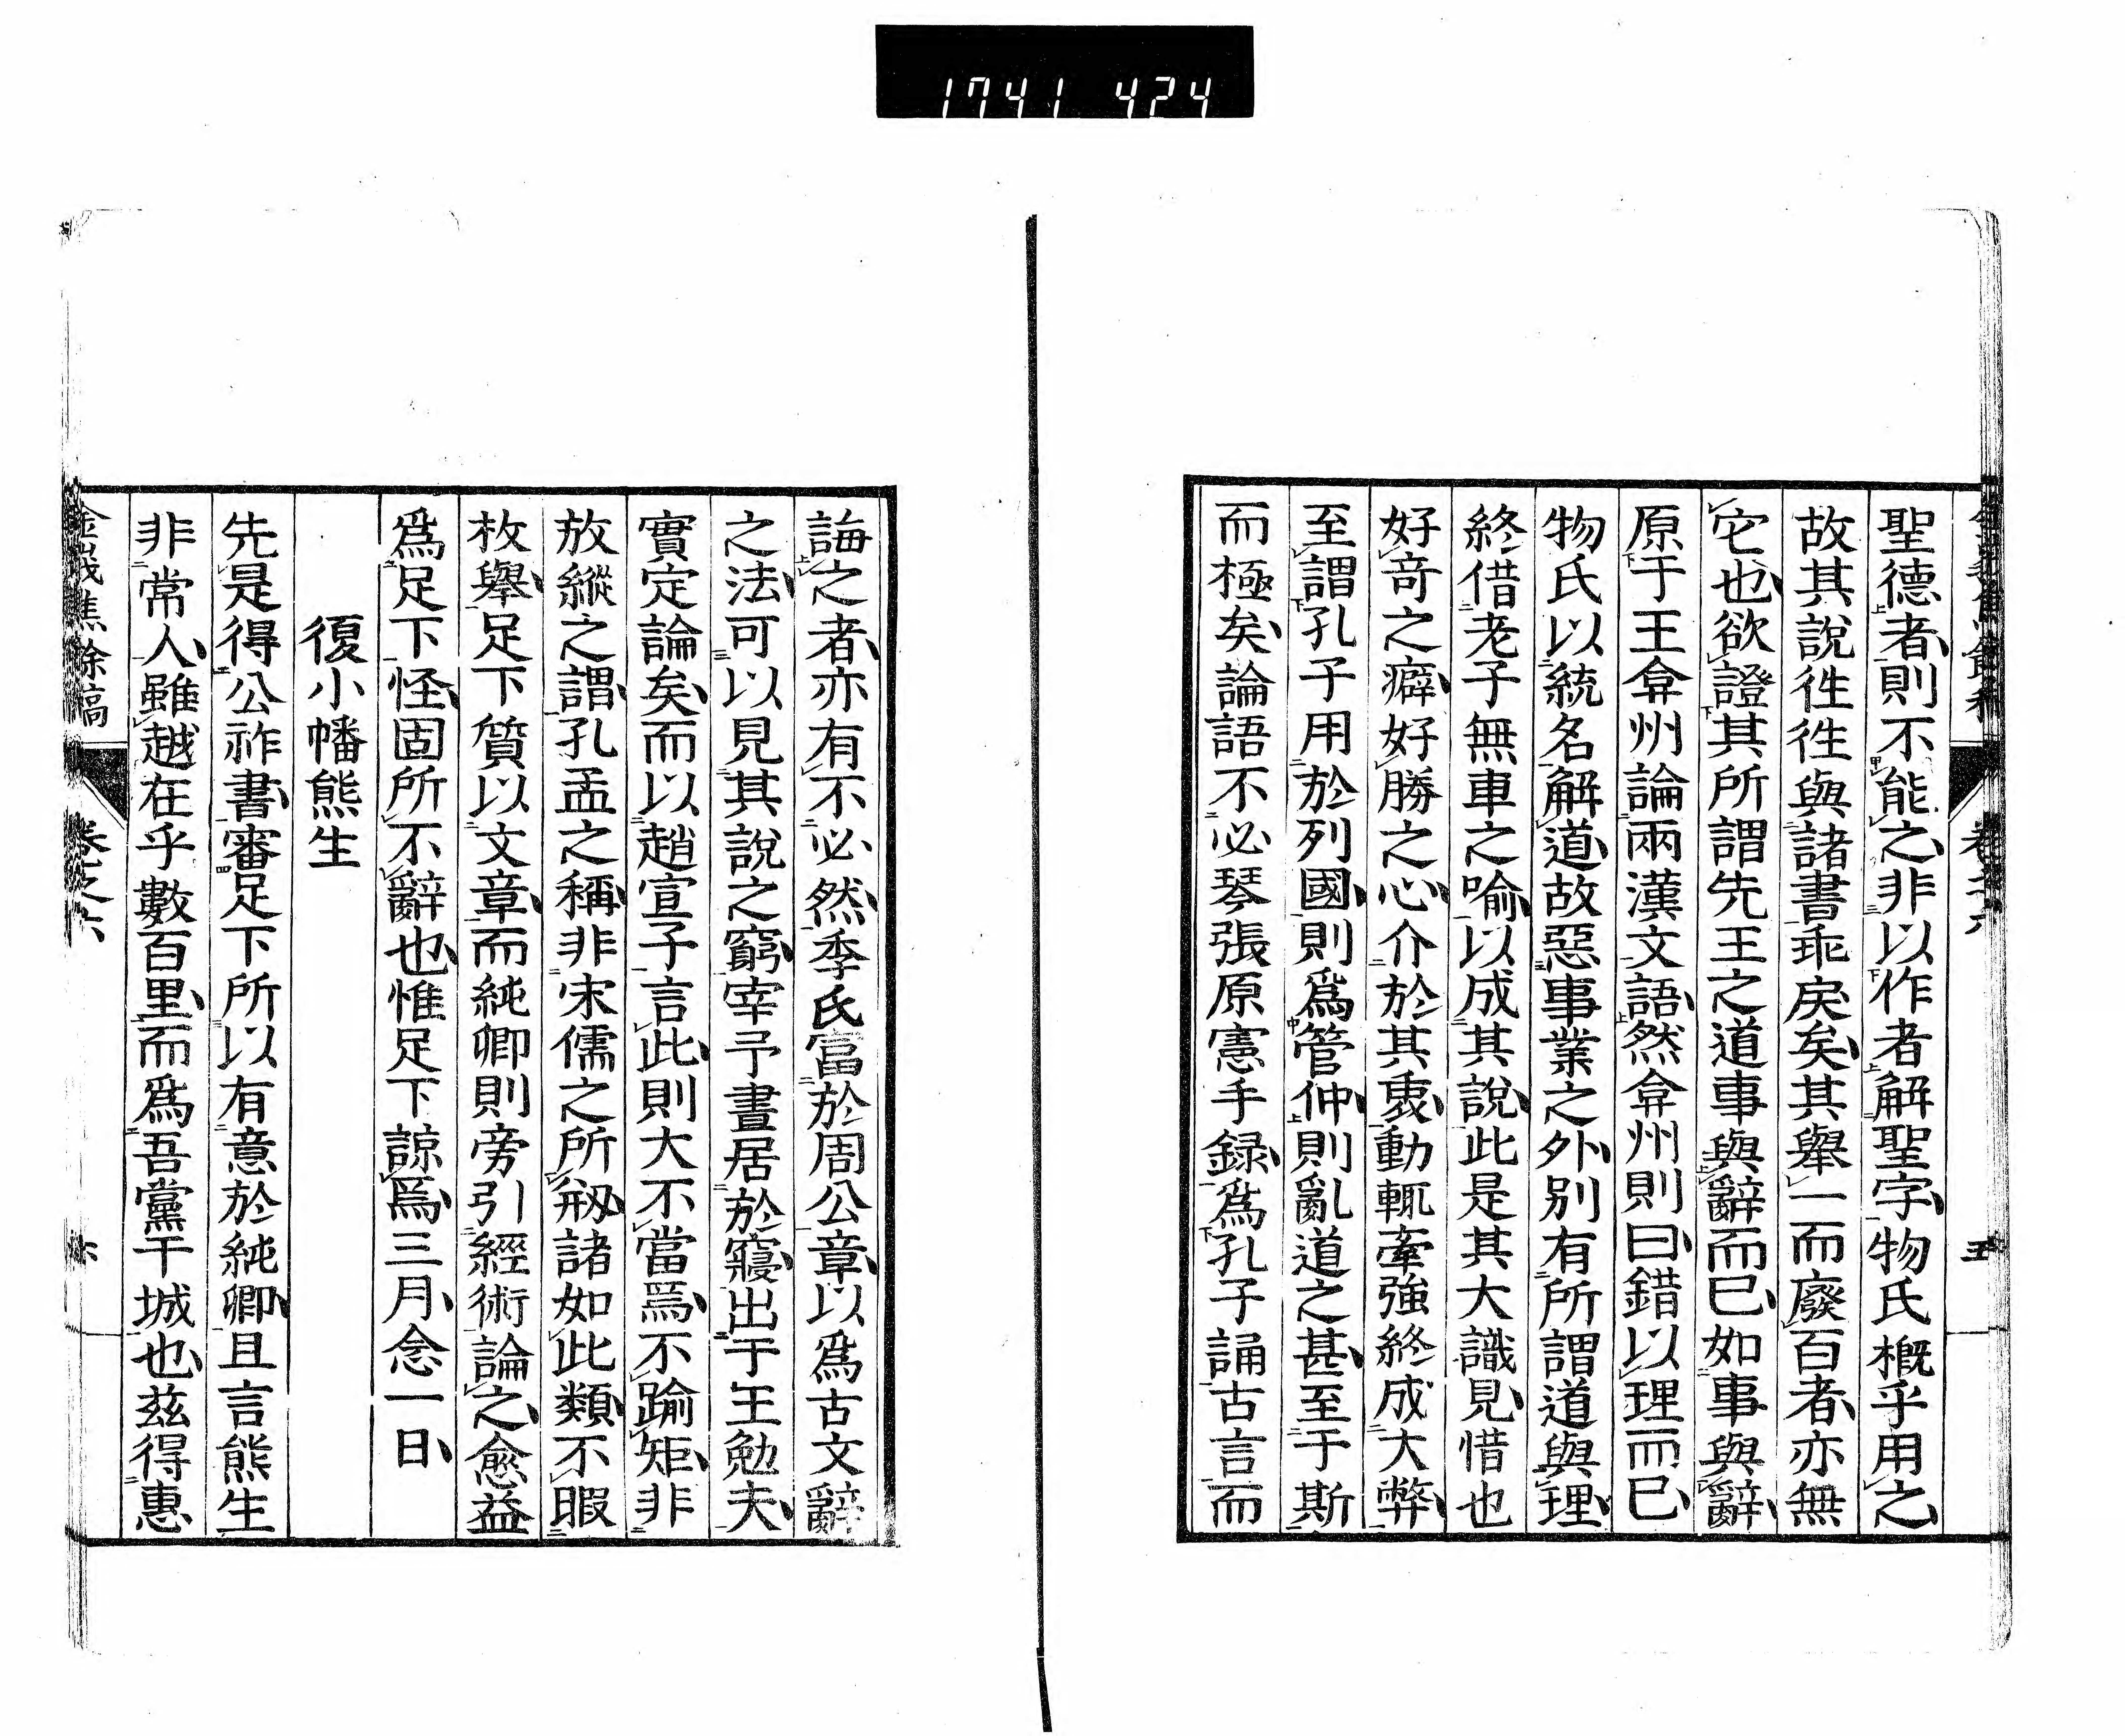 1741 424
聖德者則不能之非以作者解聖字物氏概乎用之
故其說徃徃與諸書乖戾矣其舉一而廢百者亦無
它也欲證其所謂先王之道事與辭而已如事與辭
原于王弇州論兩漢文語然弇州則曰錯以理而已
物氏以統名解道故惡事業之外別有所謂道與理
終借老子無車之喻以成其說此是其大識見惜也
好竒之癖好勝之心介於其衷動輒牽強終成大弊
至謂孔子用於列國則爲管仲則亂道之甚至于斯
而極矣論語不必琴張原憲手録爲孔子誦古言而
卷之六
五
誨之者亦有不必然季氏富於周公章以爲古文辭
之法可以見其說之窮宰予晝居於寢出于王勉夫
實定論矣而以趙宣子言此則大不當焉不踰矩非
放縱之謂孔孟之稱非宋儒之所剏諸如此類不暇
枚舉足下質以文章而純卿則旁引經術論之愈益
爲足下怪固所不辭也惟足下諒焉三月念一日
復小幡熊生
先是得公祚書審足下所以有意於純卿且言熊生
非常人雖越在乎數百里而爲吾黨干城也茲得惠
金峩焦餘稿
卷之六
六